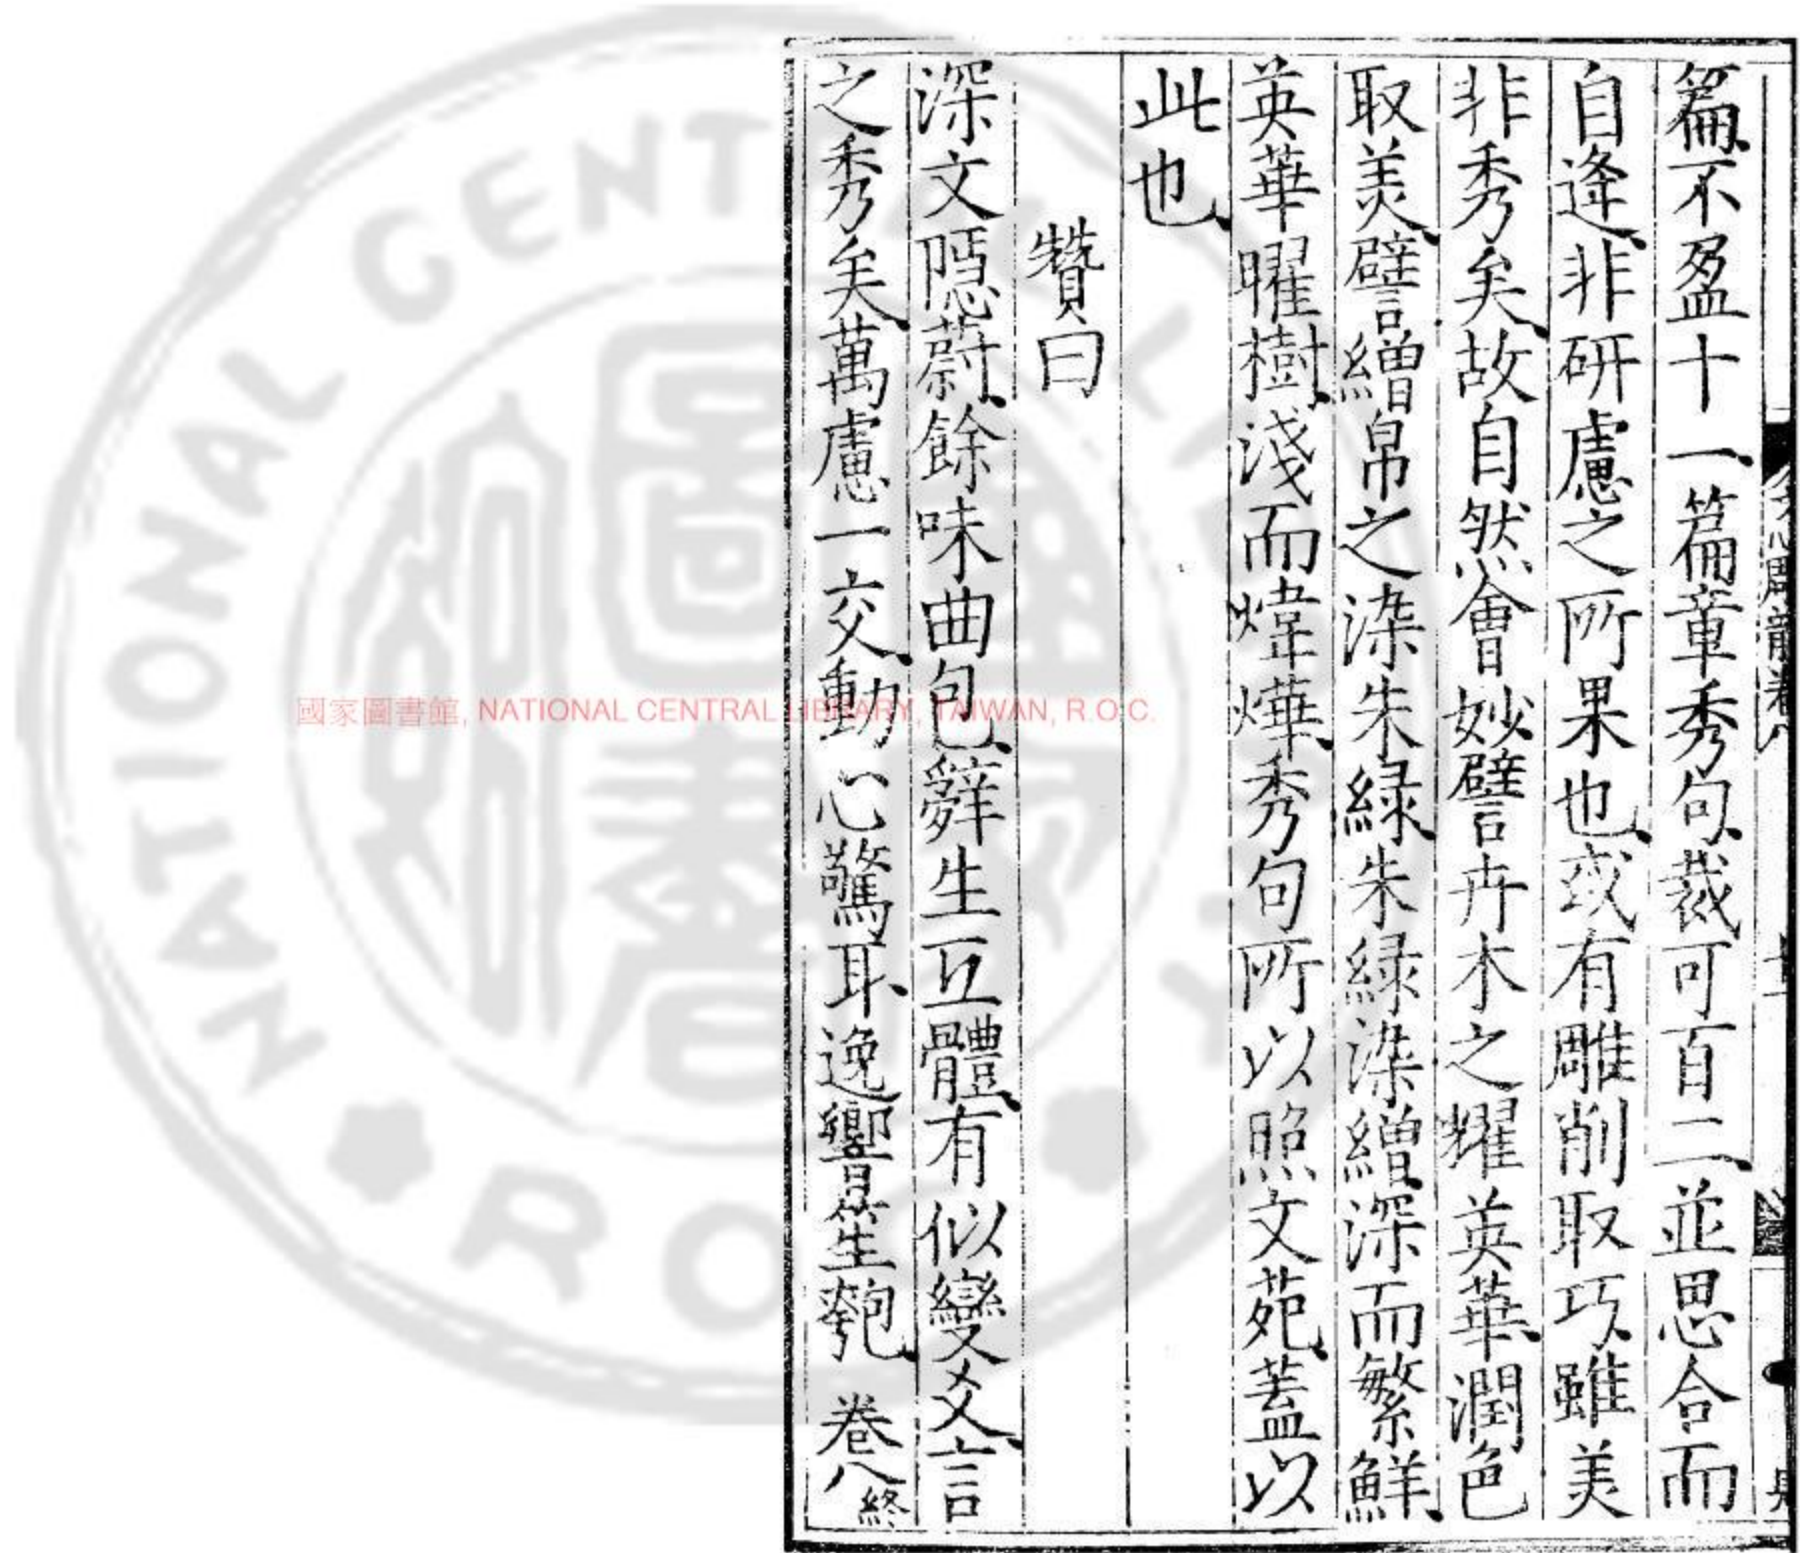 篇不盈十一篇章秀句裁可百二並思合而
自逢非研慮之所果也或有雕削取巧雖美
非秀矣故自然會妙譬卉木之耀英華潤色
取美譬繒帛之染朱緑朱緑染繒深而繁鮮
英華曜樹淺而煒燁秀句所以照文苑蓋以
此也
贊曰
深文隱蔚餘味曲包辭生互體有似變爻言
之秀矣萬慮一交動心驚耳逸響笙匏 卷八終
國家圖書館, NATIONAL CENTRAL LIBRARY, TAIWAN, R.O.C.
NATIONAL CENTRAL LIBRARY
R.O.